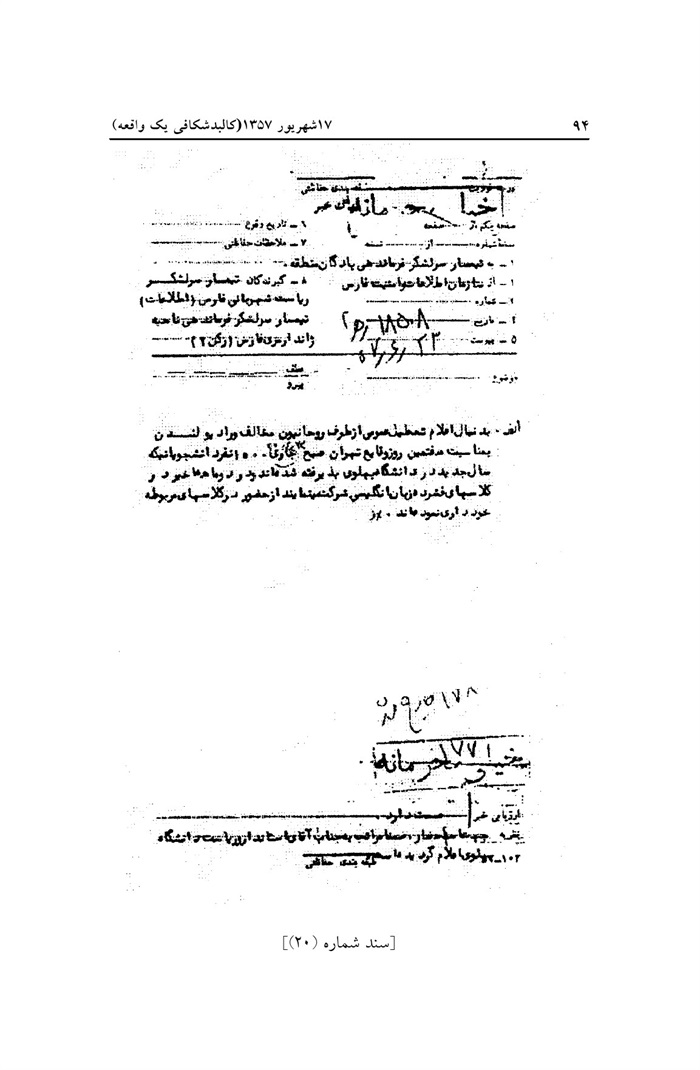 ۹۴
۱۷شهریور ۱۳۵۷(کالبدشکافی یک واقعه)
طبقه بندی حفاظتی
خبر
صفحه یکم از صفحه
نسخه شماره از نسخه
۱ - به تیمسار سرلشکر فرماندهی پادگان منطقه
۱ - از سازمان اطلاعات و امنیت فارس
۲ - شماره ۱۸۵۰۸
۴ - تاریخ ۵۷/۶/۲۳
۵ - پیوست
۶ - تاریخ وقوع
۷ - ملاحظات حفاظتی
۸ - گیرندگان تیمسار سرلشکر
ریاست شهربانی فارس (اطلاعات)
تیمسار سرلشکر فرماندهی ناحیه
ژاندارمری فارس (رکن ۲)
موضوع
عطف
پیرو
الف - بدنبال اعلام تعطیل عمومی از طرف روحانیون مخالف و رادیو لندن
بمناسبت هفتمین روز وقایع تهران صبح جاری نفر دانشجویانیکه
سال جدید در دانشگاه پهلوی پذیرفته شده‌اند و در
کلاسهای فشرده زبان انگلیسی شرکت مینمایند از حضور در کلاسهای مربوطه
خودداری نموده‌اند
۱۷۷۱
محرمانه
ارزیابی خبر صحت دارد
نظریه
پهلوی اعلام گردیده است
طبقه بندی حفاظتی
[سند شماره (۲۰)]